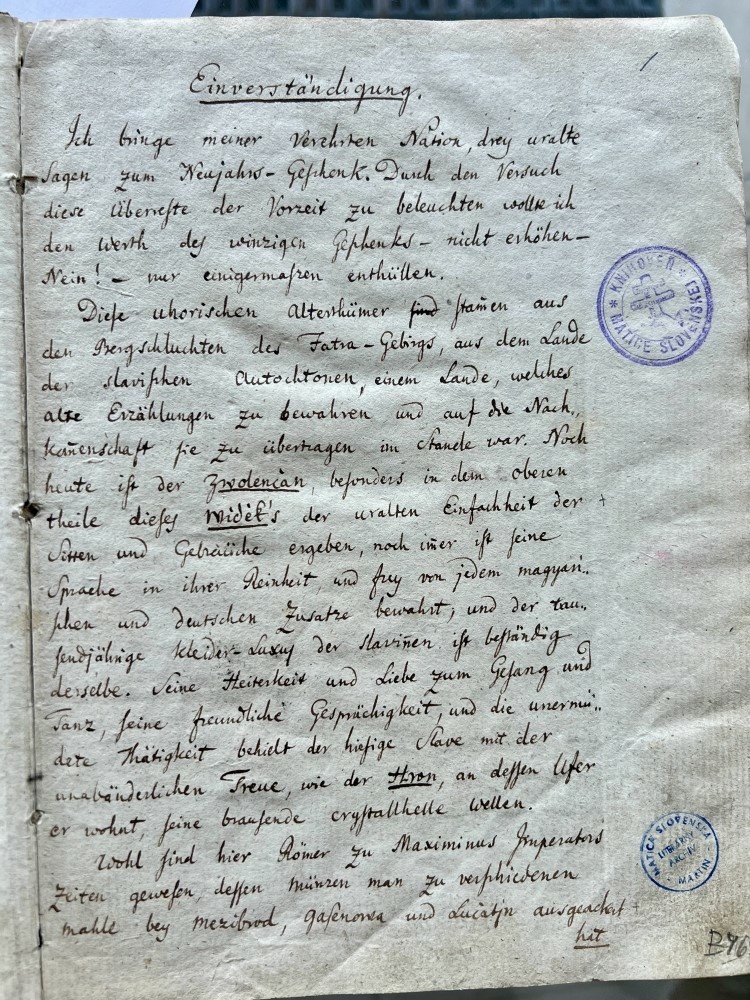 1
Einverständigung.
Ich bringe meiner Verehrten Nation, drey uralte
Sagen zum Neujahrs-Geschenk. Durch den Versuch
diese Überreste der Vorzeit zu beleuchten wollte ich
den Werth des winzigen Geschenks – nicht erhöhen –
Nein! – nur einigermaßen enthüllen.
Diese uhorischen Alterthümer sind stam̄en aus
den Bergschluchten des Fatra-Gebirgs, aus dem Lande
der slavischen Autochtonen, einem Lande, welches
alte Erzählungen zu bewahren und auf die Nach„
kom̄enschaft sie zu übertragen im Stande war. Noch
heute ist der Zwolenčan, besonders in dem oberen
theile dieses Widék's der uralten Einfachheit der +
Sitten und Gebräüche ergeben, noch im̄er ist seine
Sprache in ihrer Reinheit, und frey von jedem magyari„
schen und deutschen Zusatze bewahrt; und der tau„
sendjährige Kleider-Luxus der Slavin̄en ist beständig
derselbe. Seine Heiterkeit und Liebe zum Gesang und
Tanz, seine freundliche Gesprächigkeit, und die unermü„
dete Thätigkeit behielt der hiesige Slave mit der
unabänderlichen Treue, wie der Hron, an dessen Ufer
er wohnt, seine brausende crystallhelle wellen.
Wohl sind hier Römer zu Maximinus Imperators
Zeiten gewesen, dessen münzen man zu verschiedenen
mahle bey Mezibrod, und Lučatjn ausgeackert +
hat
KNIHOVEŇ * MATICE SLOVENSKEJ *
MATICA SLOVENSKA
LITERÁRNY
ARCHÍV
MARTIN